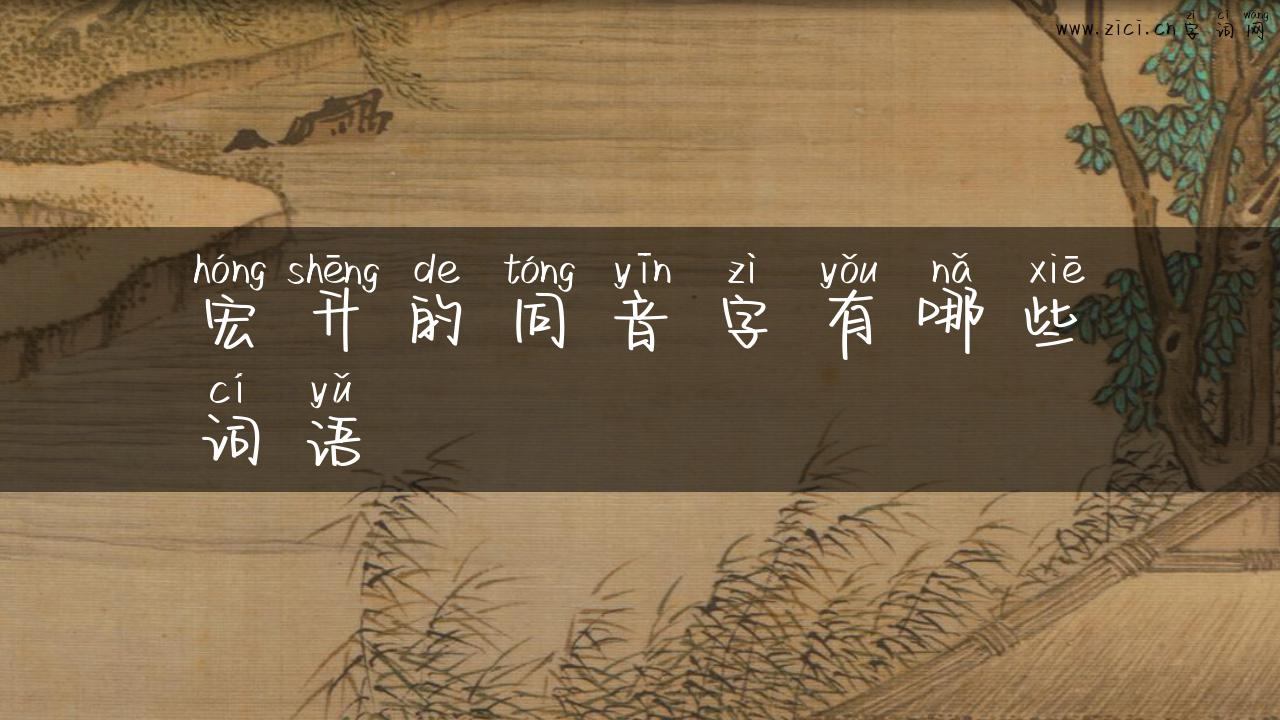 zì cí wǎng
www.zici.cn字词网
hóng shēng de tóng yīn zì yǒu nǎ xiē
宏升的同音字有哪些
cí yǔ
词语